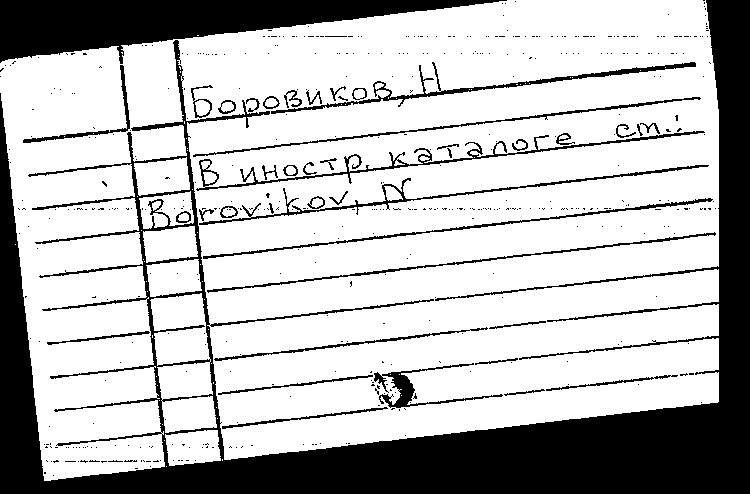 Боровиков, Н
В иностр. каталоге см.:
Borovikov, N